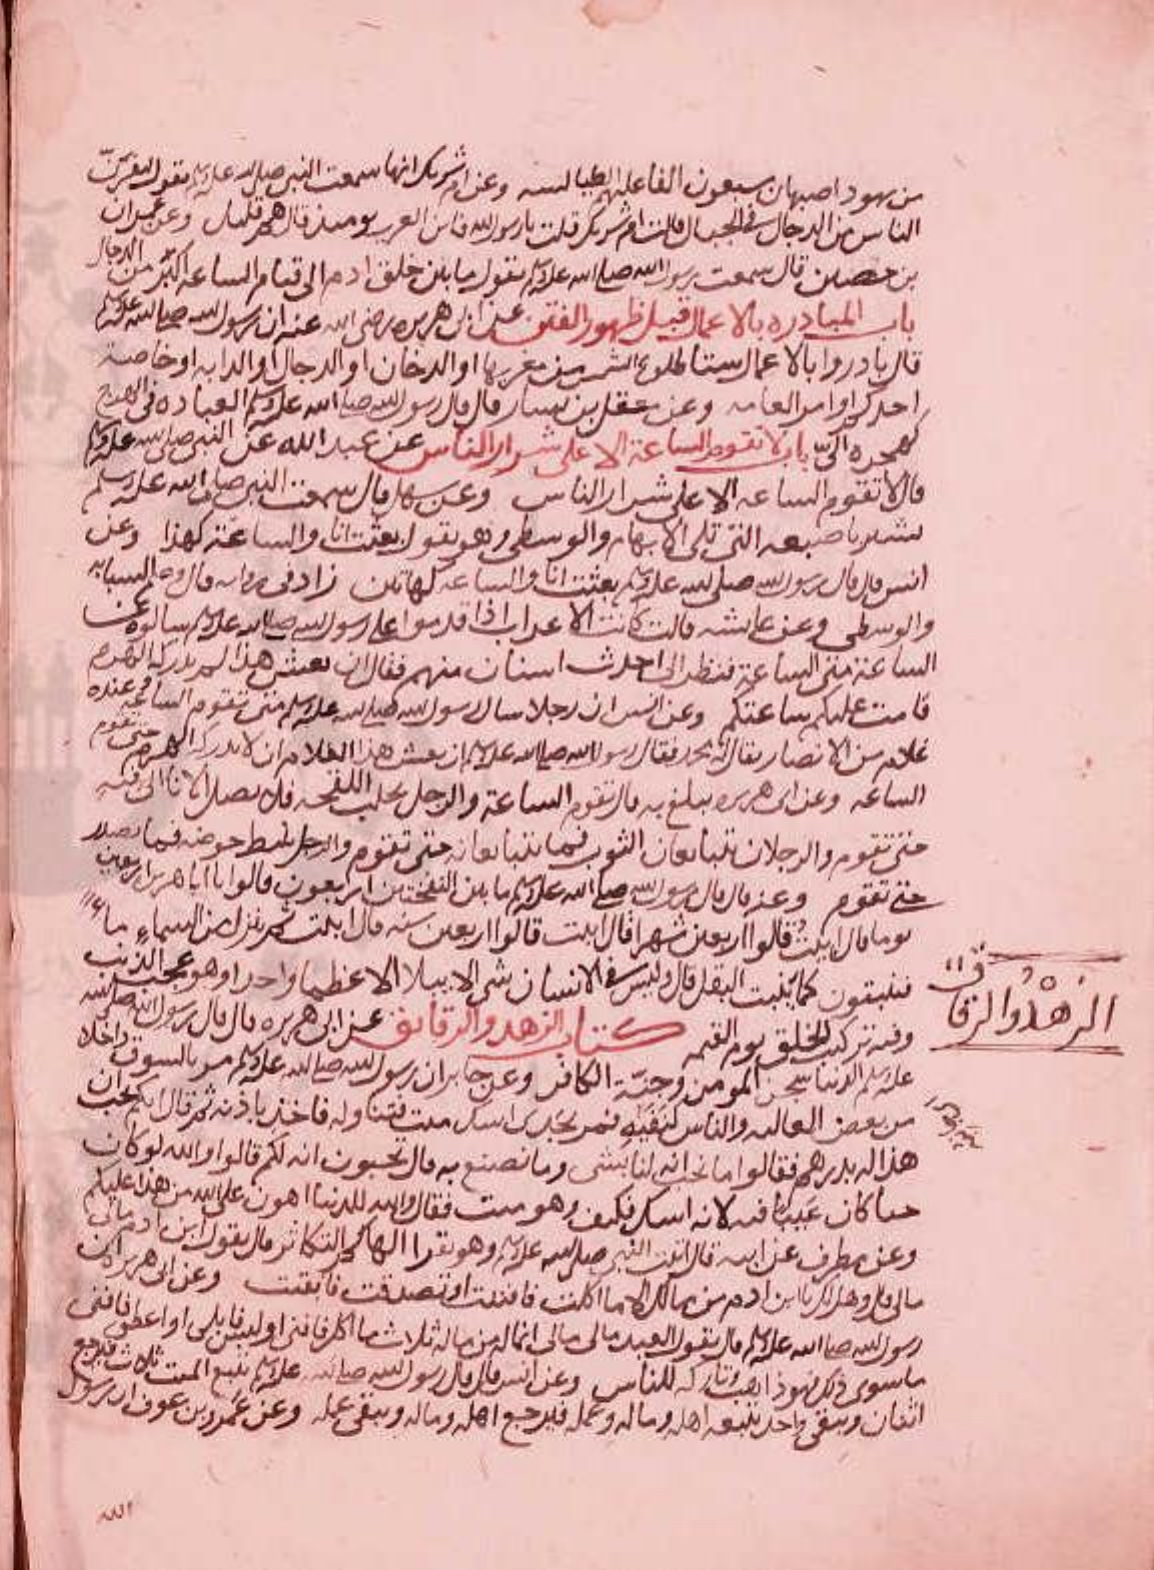 من يهود اصبهان سبعون الفا عليهم الطيالسه وعن ام شريك انها سمعت النبي صلى الله عليه وسلم يقول ليفرنّ
الناس من الدجال في الجبال قالت ام شريك قلت يا رسول الله فاين العرب يومئذ قال هم قليل وعن عمران
بن حصين قال سمعت رسول الله صلى الله عليه وسلم يقول ما بين خلق ادم الى قيام الساعه اكبر من الدجال
باب المبادره بالاعمال قبل ظهور الفتن عن ابي هريره رضي الله عنه ان رسول الله صلى الله عليه وسلم
قال بادروا بالاعمال ستا طلوع الشمس من مغربها او الدخان او الدجال او الدابه او خاصة
احدكم او امر العامه وعن معقل بن يسار قال قال رسول الله صلى الله عليه وسلم العباده في الهرج
كهجرة اليّ باب لا تقوم الساعة الا على شرار الناس عن عبد الله عن النبي صلى الله عليه وسلم
قال لا تقوم الساعه الا على شرار الناس وعن سهل قال سمعت النبي صلى الله عليه وسلم
يشير باصبعه التي تلي الابهام والوسطى وهو يقول بعثت انا والساعة كهذا وعن
انس قال قال رسول الله صلى الله عليه وسلم بعثت انا والساعه كهاتين زاد في روايه قال وضم السبابه
والوسطى وعن عايشه قالت كانت الاعراب اذا قدموا على رسول الله صلى الله عليه وسلم سالوه عن
الساعة متى الساعة فنظر الى احدث اسنان منهم فقال ان يعش هذا لم يدركه الهرم
قامت عليكم ساعتكم وعن انس ان رجلا سال رسول الله صلى الله عليه وسلم متى تقوم الساعة وعنده
غلام من الانصار يقال له محمد فقال رسول الله صلى الله عليه وسلم ان يعش هذا الغلام ان لا يدركه الهرم حتى تقوم
الساعه وعن ابي هريره يبلغ به قال تقوم الساعة والرجل يحلب اللقحه فلا يصل الانا الى فيه
حتى تقوم والرجلان يتبايعان الثوب فما يتبايعانه حتى تقوم والرجل يليط حوضه فما يصدر
حتى تقوم وعنه قال قال رسول الله صلى الله عليه وسلم ما بين النفختين اربعون قالوا يا ابا هريرة اربعين
يوما قال ابيت قالوا اربعين شهرا قال ابيت قالوا اربعين سنه قال ابيت ثم ينزل من السماء ماء
فينبتون كما ينبت البقل قال وليس في الانسان شي الا يبلا الا عظما واحدا وهو عجب الذنب
وفيه تركيب الخلق يوم القيمه كتاب الزهد والرقايق عن ابي هريره قال قال رسول الله صلى الله
الزهد والرقاق
عليه وسلم الدنيا سجن المومن وجنّة الكافر وعن جابر ان رسول الله صلى الله عليه وسلم مر بالسوق داخلا
من بعض العاليه والناس كنفيه فمر بجدي اسك ميت فتناوله فاخذ باذنه ثم قال ايكم يحب ان
هذا له بدرهم فقالوا ما نحب انه لنا بشي وما نصنع به قال تحبون انه لكم قالوا والله لو كان
حيا كان عيبا فيه لانه اسك فكيف وهو ميت فقال والله للدنيا اهون على الله من هذا عليكم
وعن مطرف عن ابيه قال اتيت النبي صلى الله عليه وسلم وهو يقرا الهاكم التكاثر قال يقول ابن ادم مالي
مالي قال وهل لك يا ابن ادم من مالك الا ما اكلت فافنيت او تصدقت فابقيت وعن ابي هريره ان
رسول الله صلى الله عليه وسلم قال يقول العبد مالي مالي انما له من ماله ثلاث ما اكل فافنى او لبس فابلى او اعطى فاقنى
ما سوى ذلك فهو ذاهب وتاركه للناس وعن انس قال قال رسول الله صلى الله عليه وسلم يتبع الميت ثلاث فيرجع
اثنان ويبقى واحد يتبعه اهله وماله وعمله فيرجع اهله وماله ويبقى عمله وعن عمرو بن عوف ان رسول
الله